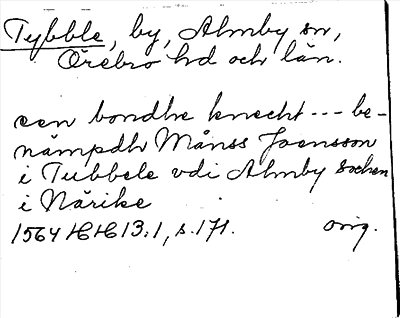 Tybble, by, Almby sn,
Örebro hd och län.
een bondhe knecht --- be-
nämpdh Månss Joensson
i Tubbele vdi Almby Sochen
i Närike
1564 HH 13:1, s. 171. orig.